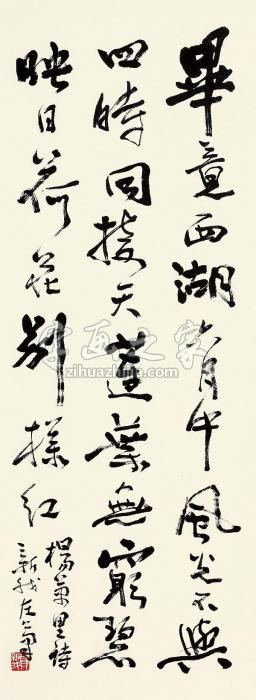 畢竟西湖六月中風光不與
四時同接天蓮葉無窮碧
映日荷花別樣紅
楊萬里詩
新我左筆
字画之家
zihuazhijia.com